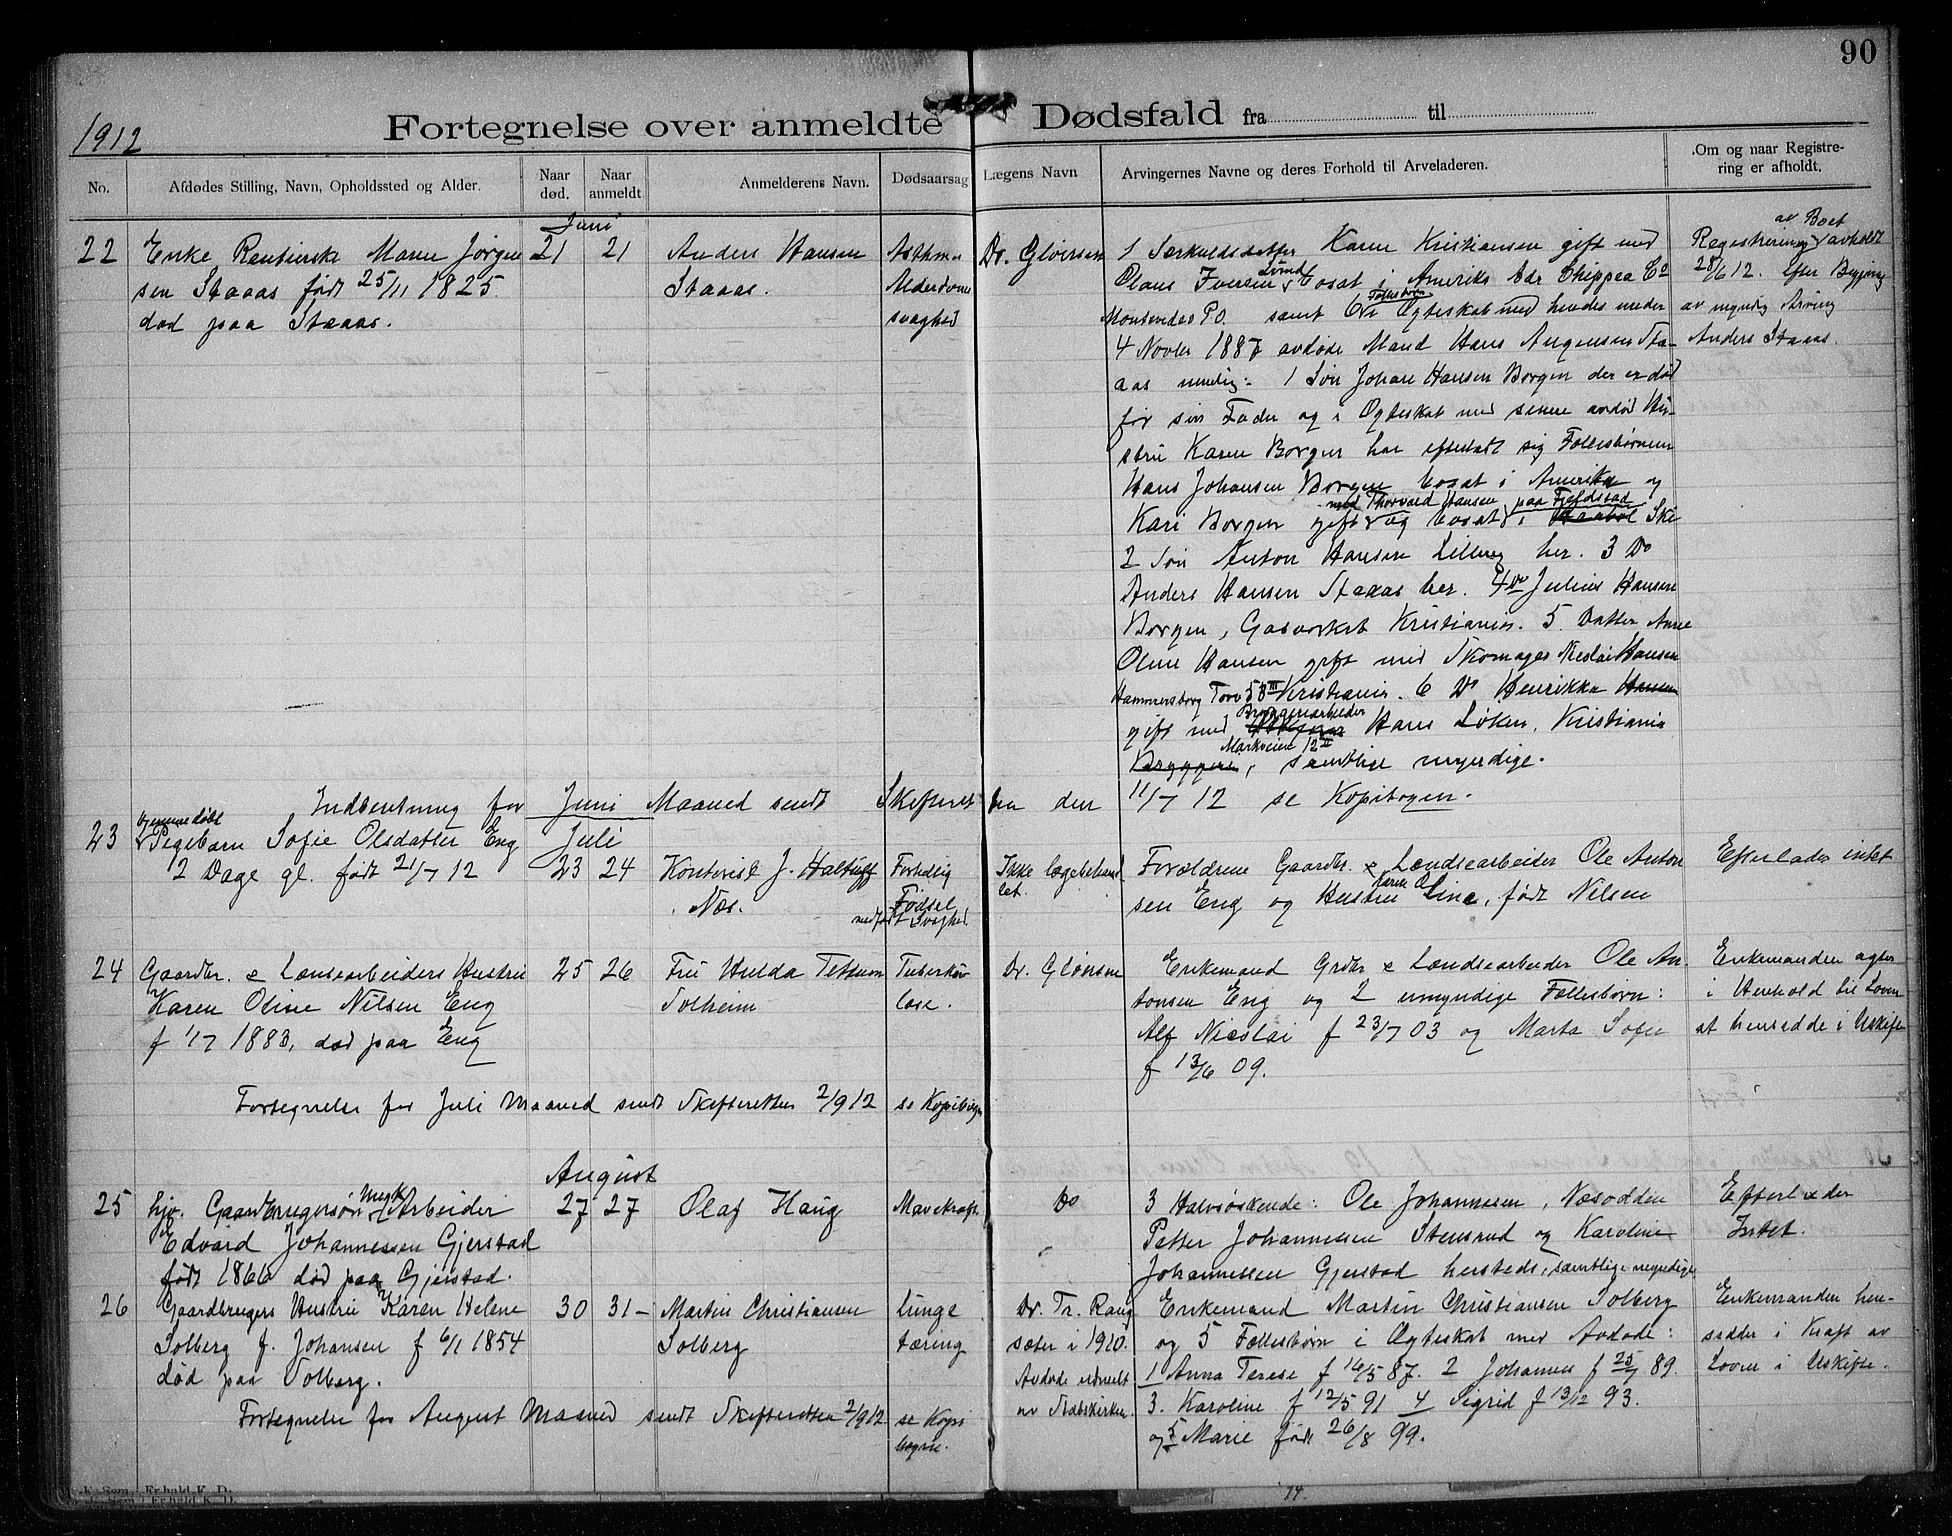 90
1912
Fortegnelse over anmeldte Dødsfald fra til
No.
Afdødes Stilling, Navn, Opholdssted og Alder.
Naar død.
Naar anmeldt
Anmelderens Navn.
Dødsaarsag
Lægens Navn
Arvingernes Navne og deres Forhold til Arveladeren.
Om og naar Registrering er afholdt.
Juni
22 Enke Maren Jørgen
sen Staaas født 25/11 1825.
død paa Staaas.
21 21
Anders Hansen
Staaas.
Asthma
Alderdoms
svaghed
Dr. Glørsen
1 Særkuldsdatter Karen Kristiansen gift med
Olaus Iversen Lund bosat i Amerika Adr Chippea Co
Montevideo P.O. samt 6 Fællesbørn i Ægteskab med hendes under
4 Novbr 1887 avdøde Mand Hans Staaas nemlig: 1 Søn Johan Hansen Borgen der er død
før sin Fader og i Ægteskab med senere avdød Hu-
stru Karen Borgen har efterladt sig Fællesbørnene
Hans Johansen Borgen bosat i Amerika og
Kari Borgen gift med Thorvald Hansen og bosat paa Fjeldstad i Ski
2 Søn Anton Hansen her. 3 Do
Anders Hansen Staaas her. 4 Do Julius Hansen
Borgen, Gasverket Kristiania. 5. Datter Anne
Oline Hansen gift med Skomager Nicolai Hansen
Hammersborg Torv 5 III Kristiania. 6 Do Henrikka Hansen
gift med Bryggeriarbeider Hans Løken, Kristiania
Markveien 12 II
Bryggeri, samtlige myndige.
Registrering av Boet avholdt
28/6 12. efter Begjæring
av myndig Arving
Anders Staaas.
Indberetning for Juni Maaned sendt Skifteretten den 11/7 12 se Kopibogen.
Juli
23 Pigebarn Sofie Olsdatter Eng
2 Dage gl. født 21/7 12
23 24
Kontorist J.
Næs.
Fortidlig
Fødsel
medfødt Svaghed
Ikke lægebehand
let.
Forældrene Gaardbr. & Lændsearbeider Ole Anton
sen Eng og Hustru Karen Oline, født Nilsen
Efterlader intet
24 Gaardbr. & Lænsearbeiders Hustru
Karen Oline Nilsen Eng
f 1/7 1883, død paa Eng
25 26
Fru Hulda
Solheim
Tuberku
lose.
Dr. Glørsen
Enkemand Grdbr & Lændsearbeider Ole An
tonsen Eng og 2 umyndige Fællesbørn:
Alf Nicolai f 23/7 03 og Marta Sofie
f 13/6 09.
Enkemanden agter
i Henhold til Loven
at hensidde i Uskifte
Fortegnelse for Juli Maaned sendt Skifteretten 2/9 12 se Kopibogen
August
25 Gaardbrugersøn Arbeider
Edvard Johannessen Gjerstad
født 1866 død paa Gjerstad.
27 27
Olaf Haug
Mavekræft.
Do
3 Halvsøskende: Ole Johannessen, Næsodden
Petter Johannessen Stensrud og Karoline
Johannessen Gjerstad hersteds, samtlige myndige
Efterlader
Intet.
26 Gaardbrugers Hustru Karen Helene
Solberg f. Johansen f 6/1 1854
død paa Solberg.
30 31
Martin Christiansen
Solberg
Lunge
tæring
Dr. Tr. Rang
sæter i 1910.
Avdøde utmeldt
av Statskirken.
Enkemand Martin Christiansen Solberg
og 5 Fællesbørn i Ægteskab med Avdøde:
1 Anna Terese f 16/5 87. 2 Johannes f 25/7 89.
3. Karoline f 12/5 91 4 Sigrid f 13/12 93.
og 5 Marie født 26/8 99.
Enkemanden hen-
sidder i Kraft av
Loven i Uskifte.
Fortegnelse for August Maaned sendt Skifteretten 2/9 12 se Kopi
bogen.
14.